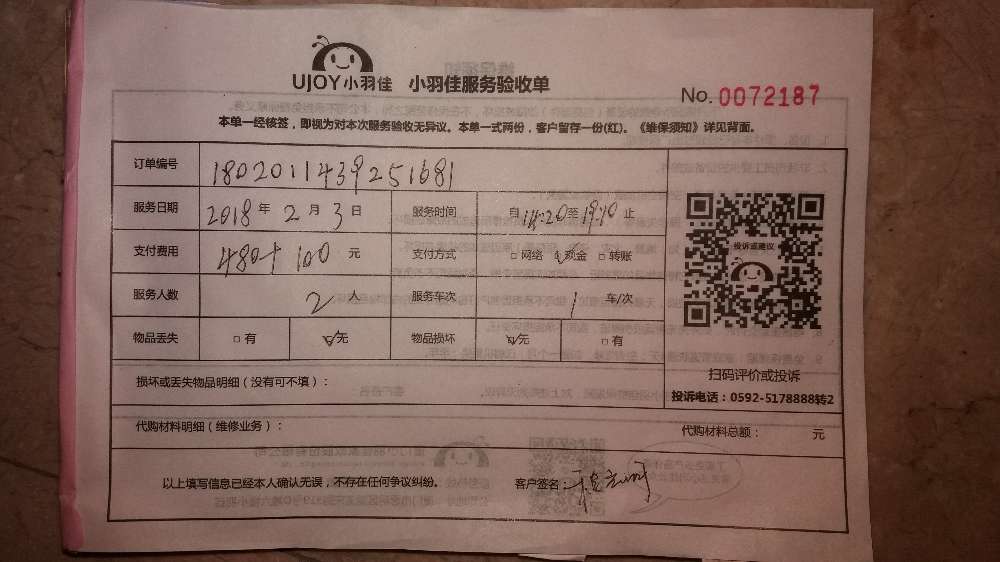 UJOY小羽佳 小羽佳服务验收单
No. 0072187
本单一经核签，即视为对本次服务验收无异议。本单一式两份，客户留存一份(红)。《维保须知》详见背面。
订单编号 1802011439251681
服务日期 2018年2月3日 服务时间 自14:20至19:10止
支付费用 480+100元 支付方式 □网络 ☑现金 □转账
投诉或建议
服务人数 2人 服务车次 1车/次
物品丢失 □有 ☑无 物品损坏 ☑无 □有
扫码评价或投诉
损坏或丢失物品明细（没有可不填）：
投诉电话：0592-5178888转2
代购材料明细（维修业务）： 代购材料总额： 元
以上填写信息已经本人确认无误，不存在任何争议纠纷。 客户签名：